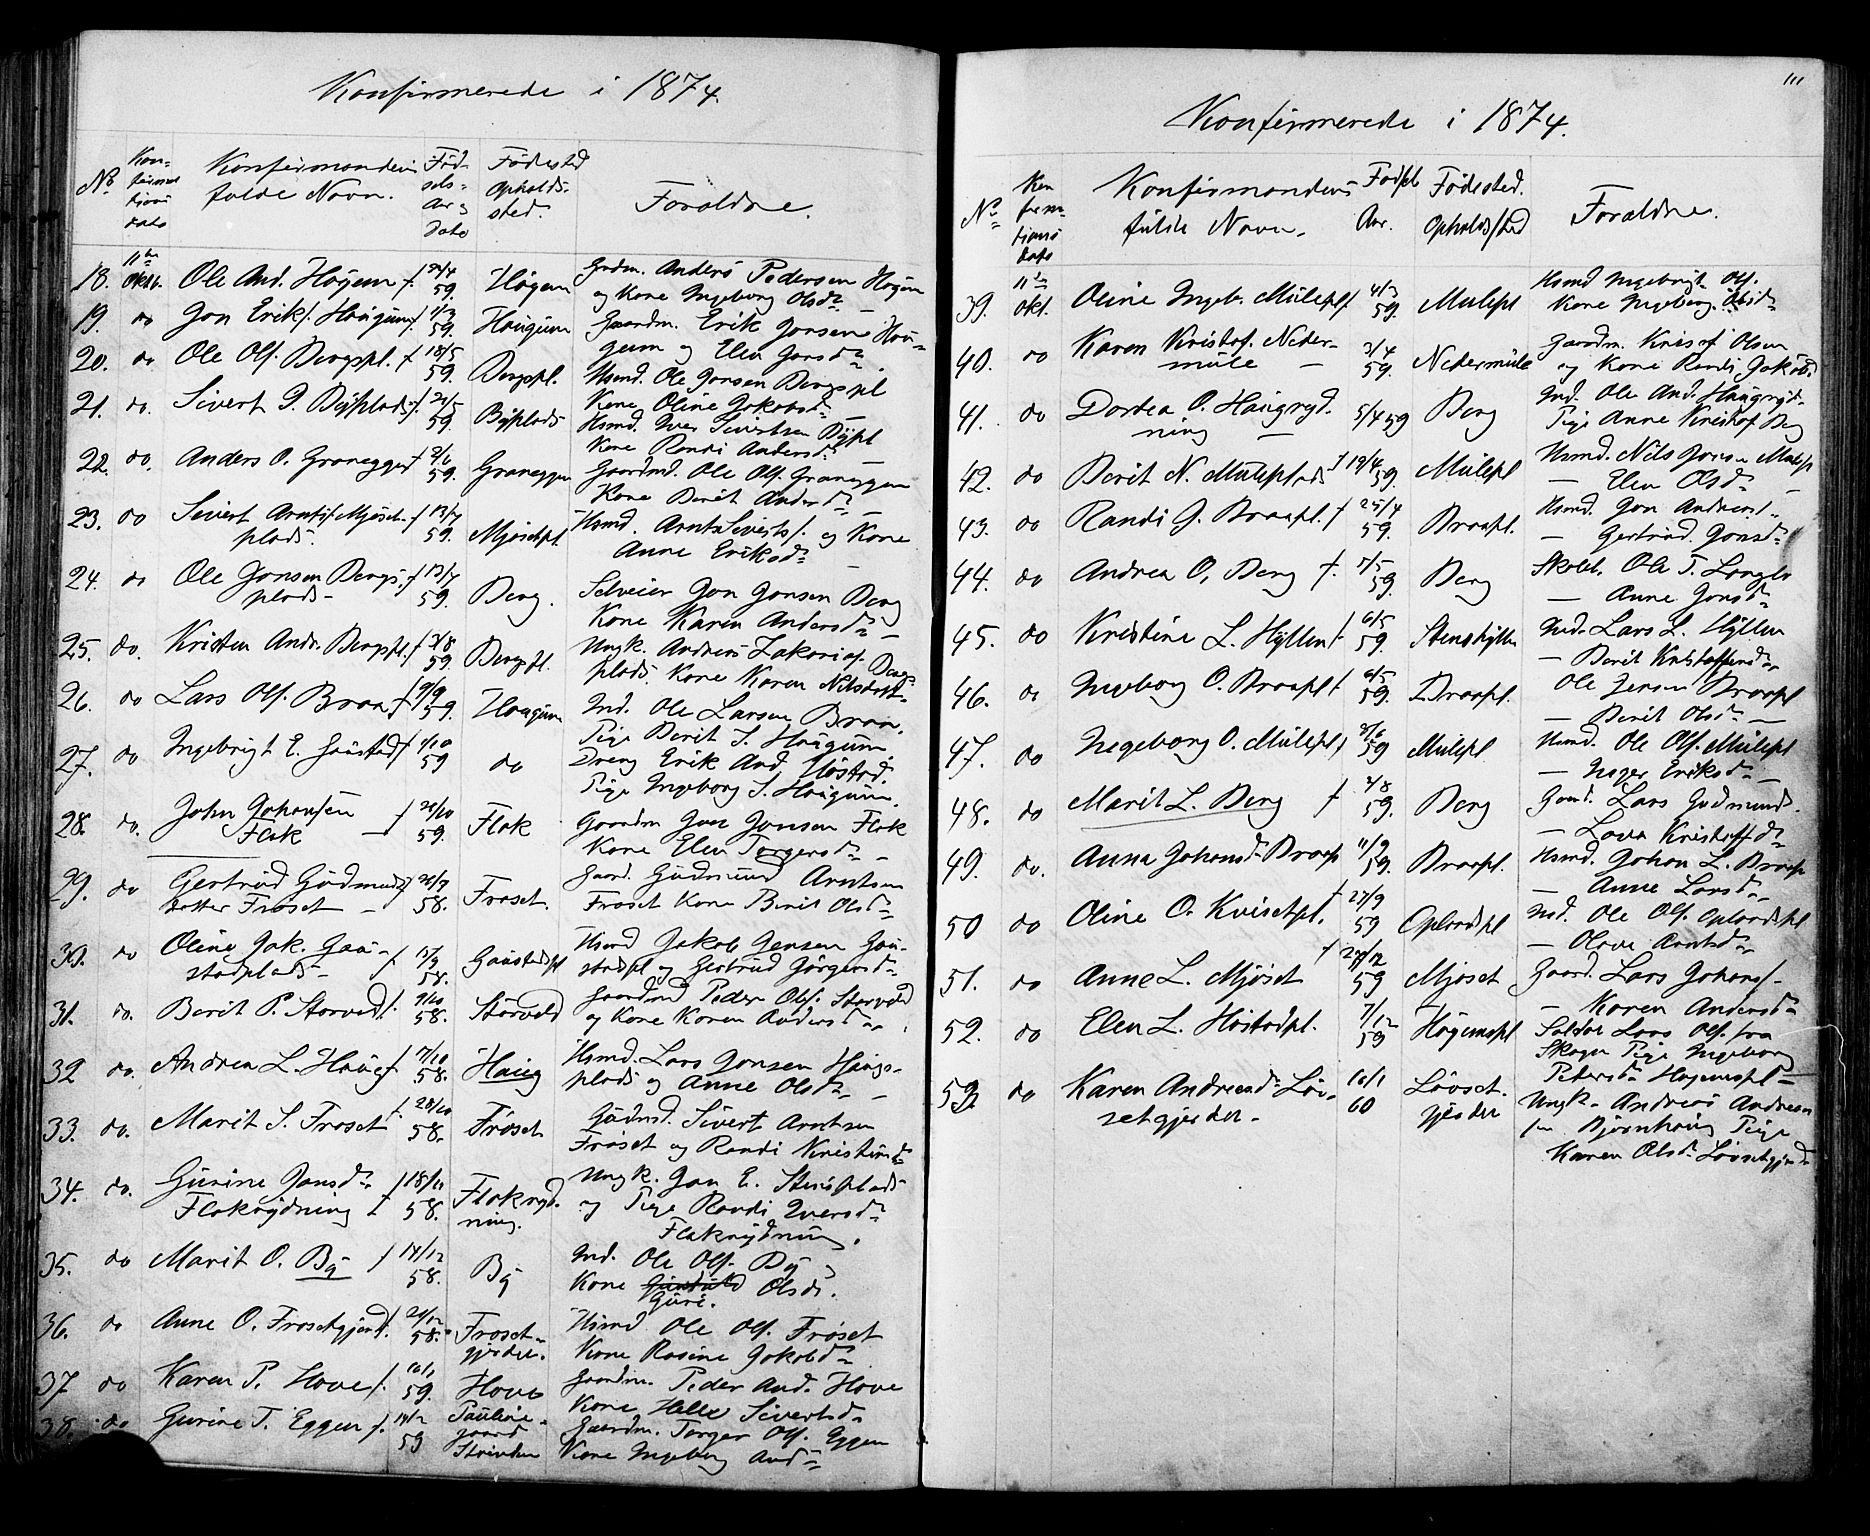 Konfirmerede i 1874.
No Kon-firma-tions dato Konfirmandens fulde Navn. Fød-sels-Aar og Dato Fødested Opholds-sted. Forældre.
18. 11te Oktb. Ole And. Høgem f. 59. Høgem Grdm. Anders Pedersen Høgem
og Kone Ingeborg Olsdr
19. do Jon Eriks. Haugum 1/3 59. Haugum Gaardm. Erik Jonsen Hau-
gum og Elen Jonsdr.
20. do Ole Ols. Bergspl. f 18/5 59. Bergspl. Husmd. Ole Jonsen Bergspl
Kone Oline Jakobsdr
21. do. Sivert I. Byplads f. 21/5 59. Byplads Husmd. Iver Sivertsen Bypl
Kone Randi Andersdr
22. do. Anders O. Graneggen 2/6 59. Graneggen Gaardmd. Ole Ols. Graneggen
Kone Berit Andersdr
23. do Sivert Arntss. Mjøset-
plads. f 13/7 59. Mjøsetpl. Husmd. Arnt Siverts. og Kone
Anne Eriksdr
24. do Ole Jonsen Bergs-
plads - f 13/7 59. Berg. Selveier Jon Jonsen Berg
Kone Karen Andersdr
25. do. Kristen Andr. Bergspl. f 3/8 59. Bergspl. Ungk. Andreas Zakarias. Bergs-
plads. Kone Karen Nilsdatt.
26. do Lars Ols. Braa f 9/9 59. Haugum Ind. Ole Larsen Braa.
Pige Berit S. Haugum
27. do Ingebrigt E. Haustad f 1/10 59 do Dreng Erik And. Høstad.
Pige Ingeborg S. Haugum.
28. do. John Johansen
Flak f 20/10 59. Flak Gaardm Jon Jonsen Flak
Kone Elen Torgersdr
29. do Gertrud Gudmunds
datter Frøset f 20/7 58. Frøset. Gaard. Gudmund Arntsen
Frøset Kone Berit Olsdr
30. do Oline Jak. Gau-
stadplads f 13/9 58. Gaustadpl Husmd Jakob Jensen Gau-
stadpl og Gertrud Jørgensdr.
31. do. Berit P. Størvold f. 9/10 58. Størvold Gaardmd Peder Ols. Størvold
og Kone Karen Andersdr.
32 do. Andrea L. Haug f 7/10 58. Haug Husmd. Lars Jonsen Haugs-
plads og Anne Olsdr
33. do. Marit S. Frøset f. 28/10 58. Frøset Gudmd. Sivert Arntsen
Frøset og Randi Kristensdr
34. do. Gurine Jonsdr.
Flakrydning f 18/11 58. Flakryd-
ning. Ungk. Jon E. Stensplads
og Pige Randi Iversdr
Flakrydning.
35. do Marit O. By f 14/12 58. By Ind. Ole Ols. By
Kone Guri. Olsdr.
36. do Anne O. Frøsetgjerd f. 21/12 58. Frøset-
gjerdet. Husmd Ole Ols. Frøset
Kone Rasine Jakobdr.
37 do Karen P. Hove f. 16/1 59. Hove Gaardm. Peder And. Hove
Kone Helle Sivertsdr
38. do Gurine T. Eggen f. 14/2 59 Pauline-
gaard
Strinden Gaardm. Torger Ols. Eggen
Kone Ingeborg Andr
111
Konfirmerede i 1874.
No Kon firma-tions dato Konfirmandens fulde Navn. Fødsels Aar. Fødested. Opholdssted Forældre.
39. 11te Okt. Oline Ingebr. Mülepl f 4/3 59. Mülepl Husmd Ingebrigt Ols.
Kone Ingeborg Olsdr
40. do Karen Kristof. Neder-
müle 3/4 59. Nedermüle Gaardm. Kristof Olsen
og Kone Randi Jakobs.
41. do Dortea O. Haugryd-
ning 5/4 59 Berg Ind. Ole And. Haugryd-
Pige Anne Kristof Berg
42. do Berit N. Müleplads f 19/4 59. Mülepl Husmd. Nils Jonsen Mülepl
— Elen Olsdr
43. do Randi J. Braapl. f 25/4 59. Braapl. Husmd. Jon Anders.
— Gertrud Jonsdr
44. do Andrea O. Berg f. 1/5 59. Berg Skoleh. Ole T. Langlo
— Anne Jonsdr
45. do Kristine L. Hyllen f 6/5 59. Stenshyllen Ind. Lars L. Hyllen
— Berit Kristoffersdr
46. do Ingeborg O. Braapl f 6/5 59. Braapl. Ole Jensen Braapl
— Berit Olsdr
47. do Ingeborg O. Mülepl f 3/6 59 Mülepl Husmd. Ole Ols. Mülepl
— Inger Eriksdr
48. do Marit L. Berg f 2/8 59. Berg Gaard. Lars Gudmunds.
— Lava Kristoffdr
49. do. Anna Johansdr Braapl 11/9 59. Braapl. Husmd. Johan L. Braapl
— Anne Larsdr
50 do Oline O. Kvisetpl. f 27/9 59 Oplandspl Ind. Ole Ols. Oplandspl
— Olava Arntsdr
51. do Anne L. Mjøset f 27/12 59 Mjøset Gaard. Lars Johans.
— Karen Andersdr
52. do Elen L. Høstadpl. 7/12 59 Høgemspl Soldat Lars Ols. fra
Skogn Pige Ingeborg
Petersdr Høgemspl
53. do Karen Andreasdr Løv-
setgjerdet. 16/1 60 Løvset-
gjerdet Ungk. Andreas Andersen
fra Bjørnhaug Pige
Karen Olsdr Løvsetgjerdet